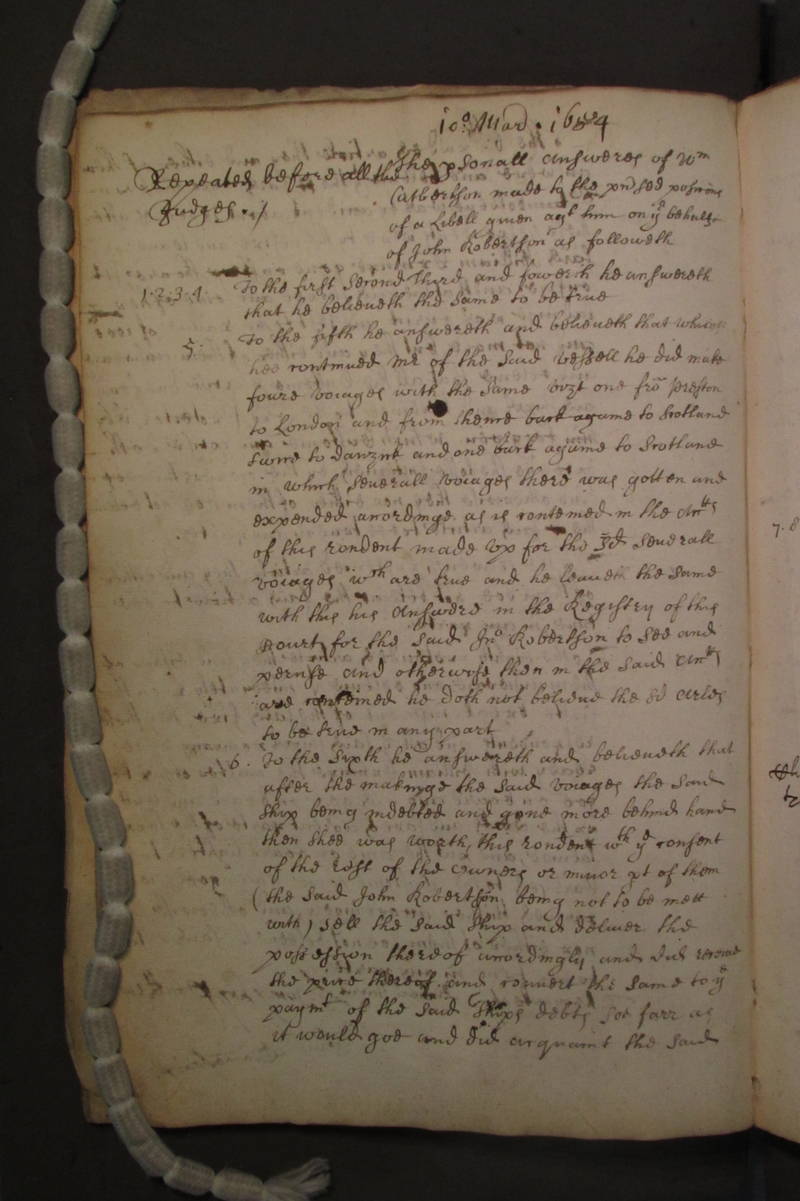 10o. Mar. 1654
The psonall answeres of Wm
Repeated before all the
Judges ./
Cutbertson made to the pnd sed positions
of a Libell given agt him on ye behalfe
of John Robertson as followeth
1.2.3.4. To the first second Third and fowerth he answereth
that he believeth the same to be true
5. To the fifth he answereth and believeth that
hee continued Mr of the said vessell he did make
foure voiages with the same vizt one fro Preston
to London and from thence back agame to Scotland
twice to and one back agame to Scotland
in which severall voiages there was gotten and
expended accordinge as is conteined in the Actts
of this rondent made vp for the sd severall
voiages wch are true and he leaveth the same
with this his Answere in the Registry of this
Court for the said Jno Robertson to see and
peruse and otherwise then in the said Actts
are conteined he doth not believe the sd arles
to be true in any part
6. To the Sixth he answereth and believeth that
after the makinge the said voiages the said
ship being indebted and gone more behind hand
then shee was worth, this rondent wth ye consent
of the rest of the owners or maior pt of them
(the said John Robertson being not to be mett
with) sell the said ship and deliver the
possession thereof accordingly and did receive
the price thereof and convert the same to ye
paymt of the said ships debts soe farr as
it would goe and did acquaint the said
7. 8